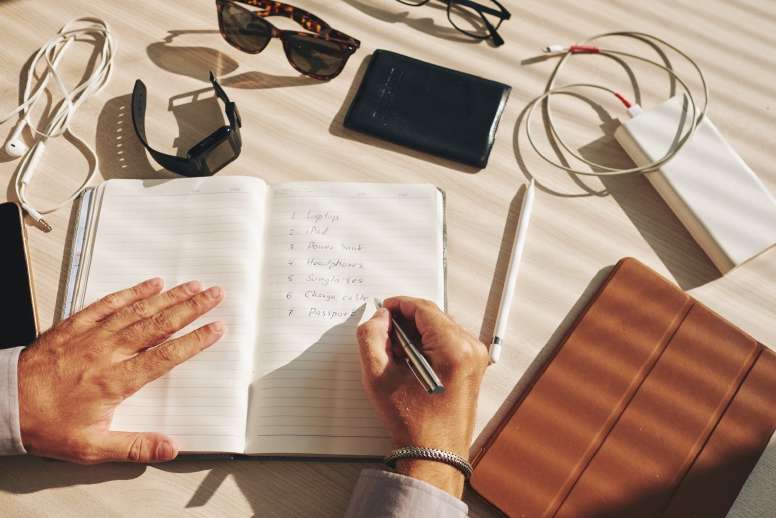 1 Laptop
2 iPad
3 Power bank
4 Headphones
5 Sunglasses
6 Charge cable
7 Passport